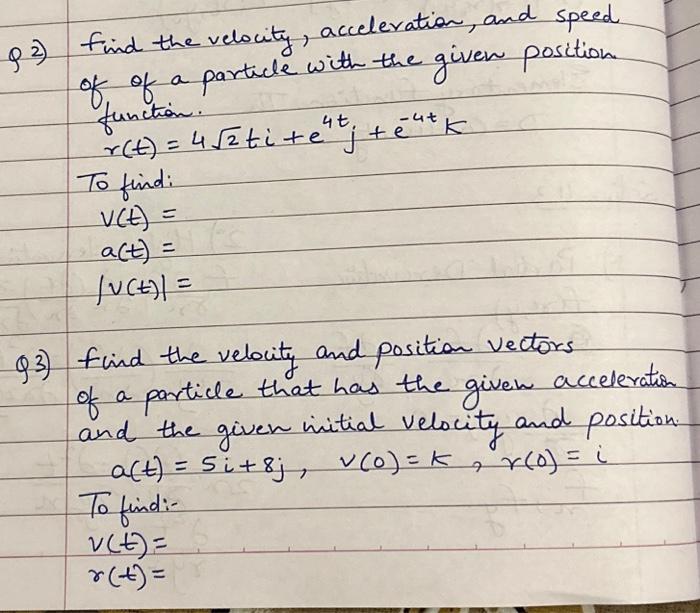 Q2) Find the velocity, acceleration, and speed
of of a particle with the given position
function.
r(t) = 4√2 t i + e^{4t} j + e^{-4t} k
To find:
v(t) =
a(t) =
|v(t)| =
Q3) Find the velocity and position vectors
of a particle that has the given acceleration
and the given initial velocity and position
a(t) = 5i + 8j, v(0) = k, r(0) = i
To find:-
v(t) =
r(t) =